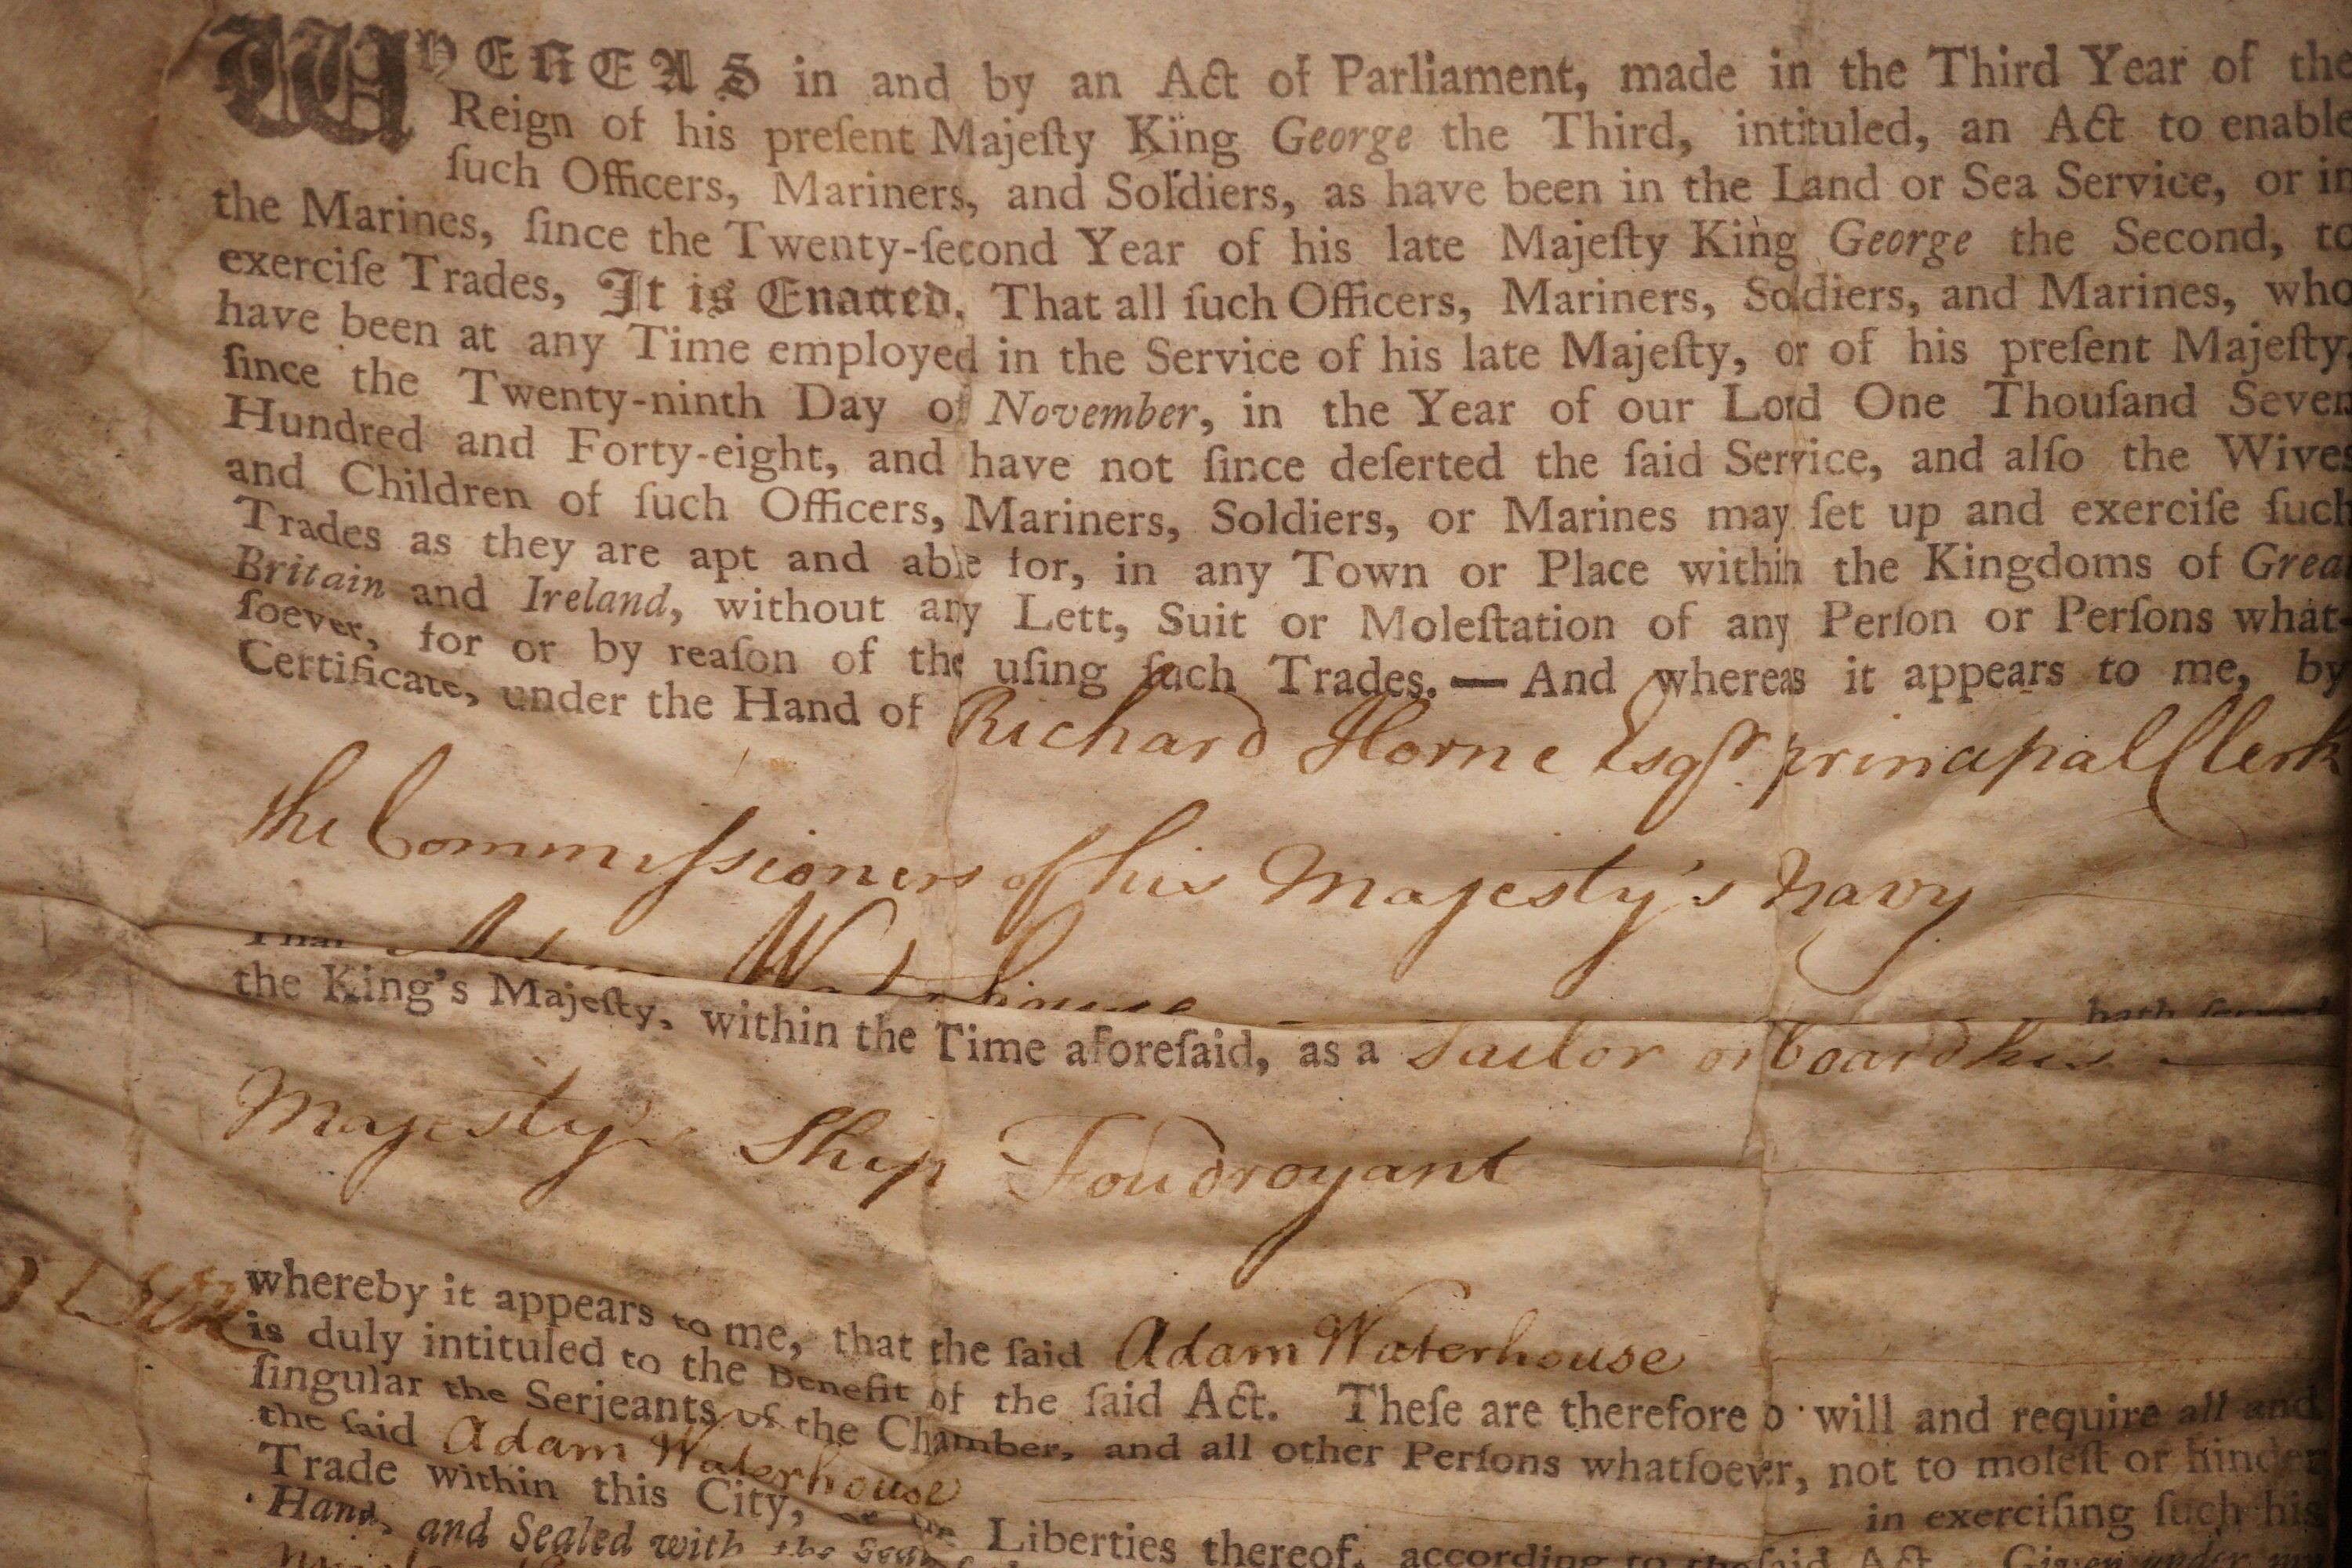 WHEREAS in and by an Act of Parliament, made in the Third Year of the
Reign of his preſent Majeſty King George the Third, intituled, an Act to enable
ſuch Officers, Mariners, and Soldiers, as have been in the Land or Sea Service, or in
the Marines, ſince the Twenty-ſecond Year of his late Majeſty King George the Second, to
exerciſe Trades, It is Enacted, That all ſuch Officers, Mariners, Soldiers, and Marines, who
have been at any Time employed in the Service of his late Majeſty, or of his preſent Majeſty,
ſince the Twenty-ninth Day of November, in the Year of our Lord One Thouſand Seven
Hundred and Forty-eight, and have not ſince deſerted the ſaid Service, and alſo the Wives
and Children of ſuch Officers, Mariners, Soldiers, or Marines may ſet up and exerciſe ſuch
Trades as they are apt and able for, in any Town or Place within the Kingdoms of Great
Britain and Ireland, without any Lett, Suit or Moleſtation of any Perſon or Perſons what-
ſoever, for or by reaſon of the uſing ſuch Trades. — And whereas it appears to me, by
Certificate, under the Hand of Richard Horne Esqr. principal Clerk
the Commiſsioners of his Majesty's Navy
That Adam Waterhouse hath ſerved
the King's Majeſty, within the Time aforeſaid, as a Sailor on board his
Majesty's Ship Foudroyant
whereby it appears to me, that the ſaid Adam Waterhouse
is duly intituled to the Benefit of the ſaid Act. Theſe are therefore to will and require all and
ſingular the Serjeants of the Chamber, and all other Perſons whatſoever, not to moleſt or hinder
the ſaid Adam Waterhouse in exerciſing ſuch his
Trade within this City, or the Liberties thereof, according to the ſaid Act. Given under my
Hand, and Sealed with the Seal